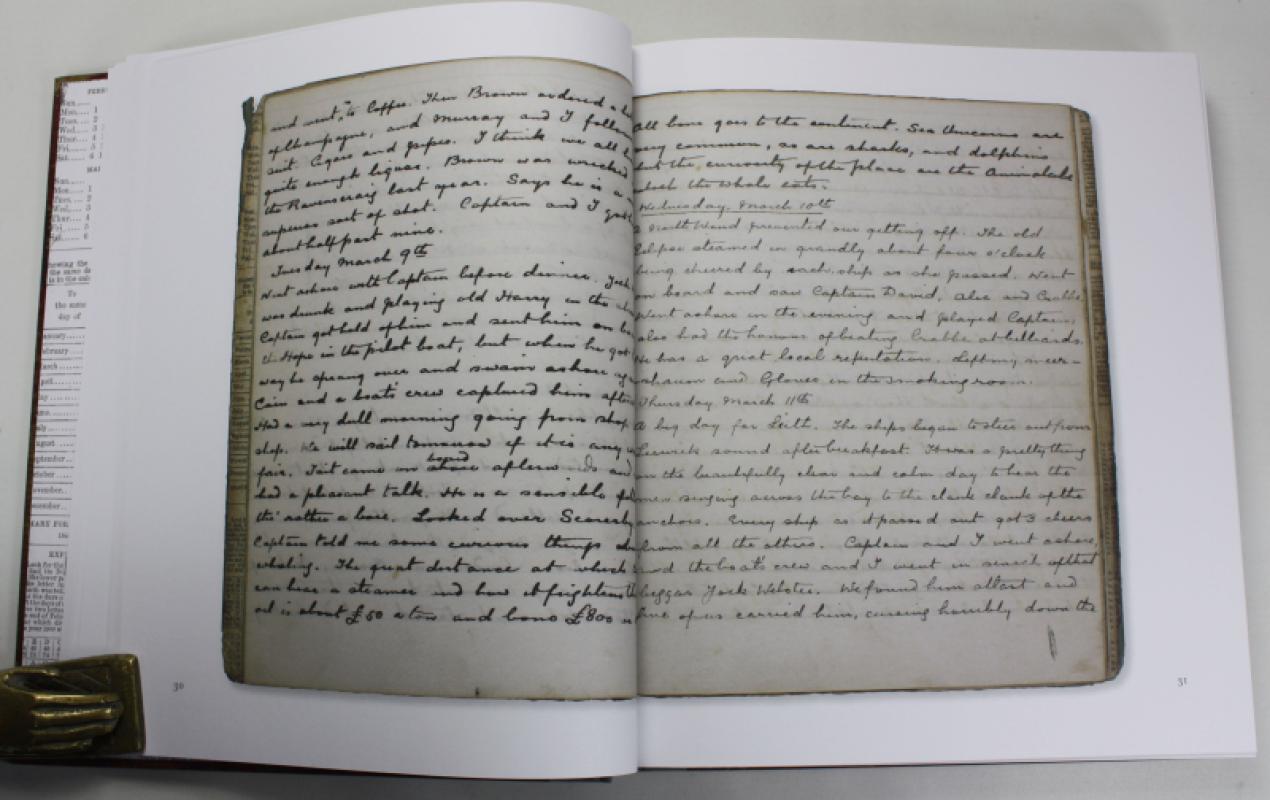 and went to Coffee. Then Brown ordered a
of champagne, and Murray and I
suit. Cigars and pipes. I think we all
quite enough liquor. Brown was wrecked
the Ravenscraig last year. Says he is a
superior sort of shot. Captain and I
about half past nine.
Tuesday March 9th
Went ashore with Captain before dinner.
was drunk and playing old Harry in the
Captain got hold of him and sent him on
the Hope in the pilot boat, but when he got
way he sprang over and swam ashore
Cain and a boats crew captured him after
Had a very dull morning going from shop
shop. We will sail tomorrow if it is any
fair. Tait came on board afterw ds and
had a pleasant talk. He is a sensible
tho' rather a bore. Looked over Scoresby
Captain told me some curious things
whaling. The great distance at which
can hear a steamer and how it frightens
oil is about £50 a ton and bone £800
all bone goes to the continent. Sea Unicorns are
very common, so are sharks, and dolphins
but the curiosity of the place are the Animalcula
which the whale eats.
Wednesday, March 10th
A North Wind prevented our getting off. The old
Eclipse steamed in grandly about four o'clock
being cheered by each ship as she passed. Went
on board and saw Captain David, Alec and Crabbe
Went ashore in the evening and played Captain,
also had the honour of beating Crabbe at billiards.
He has a great local reputation. Left my meer-
-schaum and Gloves in the smoking room.
Thursday March 11th
A big day for Leith. The ships began to steer out from
Lerwick sound after breakfast. It was a pretty thing
on the beautifully clear and calm day to hear the
men singing across the bay to the clank clank of the
anchors. Every ship as it passed out got 3 cheers
from all the others. Captain and I went ashore,
and the boat's crew and I went in search of that
beggar Jack Webster. We found him at last and
five of us carried him, cursing horribly down the
30
31
FEBR
Sun....
Mon.... 1
Tues.... 2
Wed.... 3
Thur.... 4
Fri..... 5
Sat..... 6
MAR
Sun....
Mon.... 1
Tues.... 2
Wed.... 3
Thur.... 4
Fri..... 5
Sat..... 6
To
the same
day of